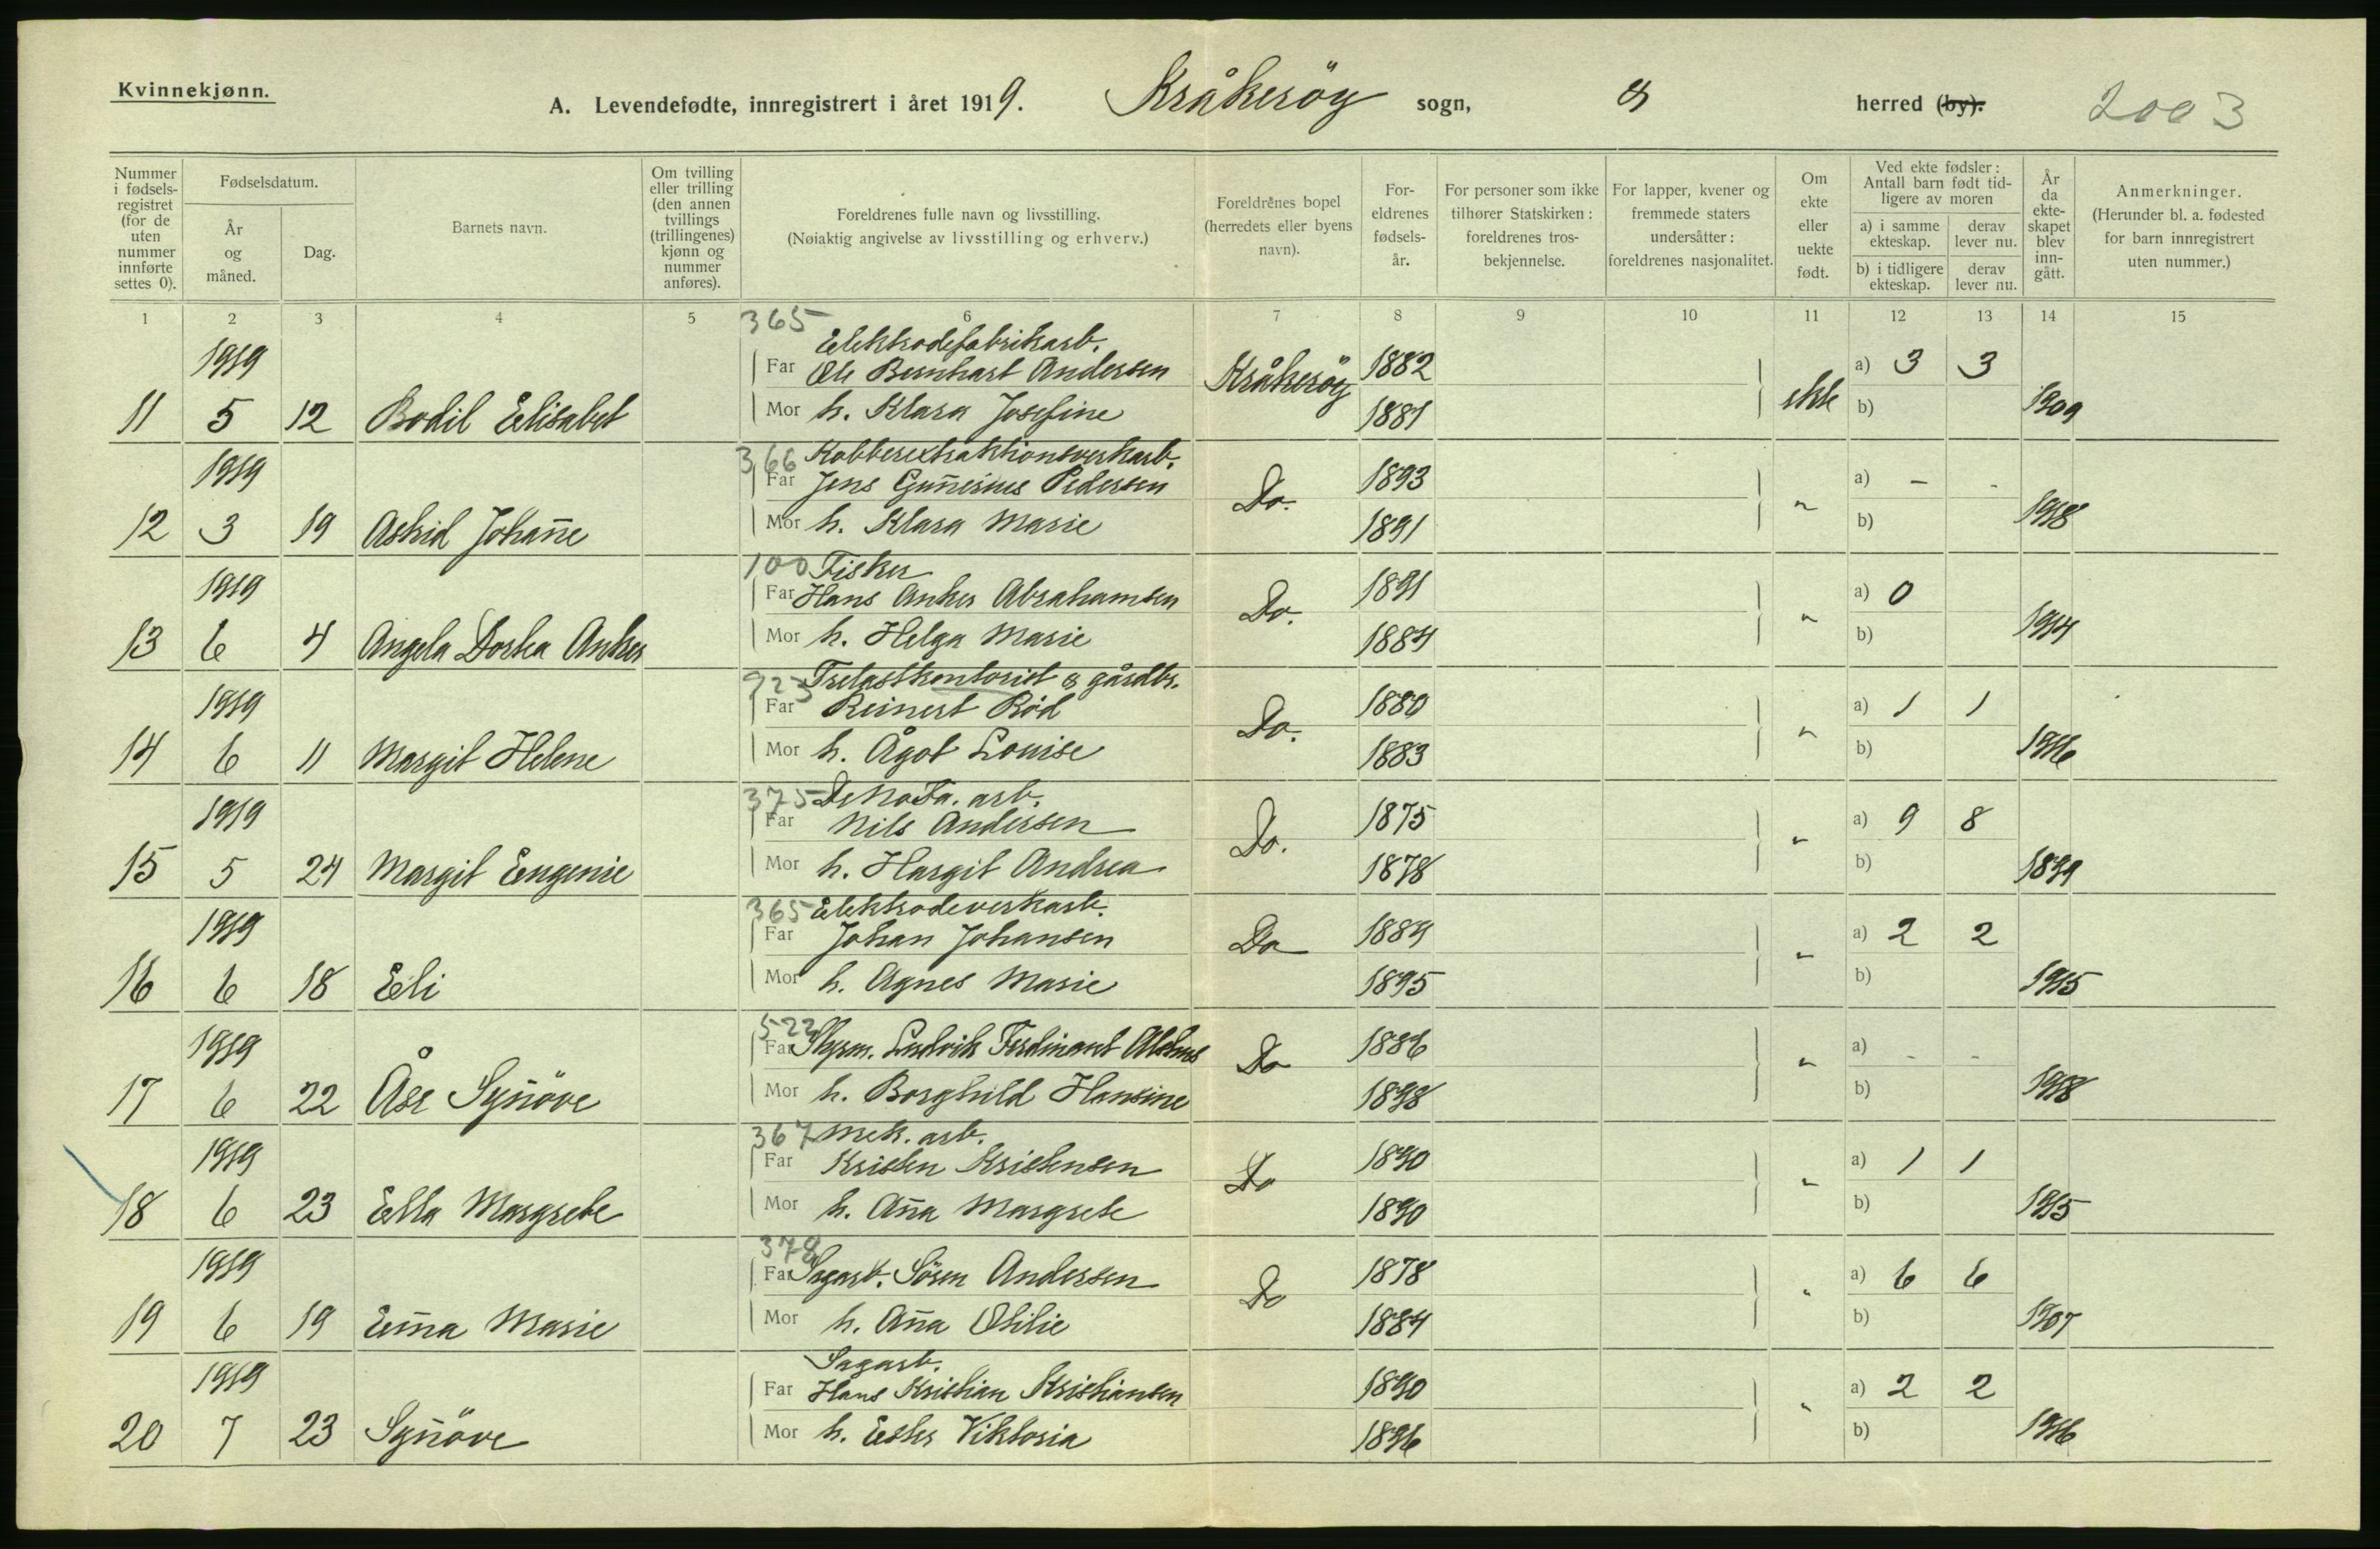 Kvinnekjønn.
A. Levendefødte, innregistrert i året 1919. Kråkeröy sogn, " herred (by). 2003
Nummer i fødsels-registret (for de uten nummer innførte settes 0).
Fødselsdatum.
År og måned.
Dag.
Barnets navn.
Om tvilling eller trilling (den annen tvillings (trillingenes) kjønn og nummer anføres).
Foreldrenes fulle navn og livsstilling.
(Nøiaktig angivelse av livsstilling og erhverv.)
Foreldrenes bopel (herredets eller byens navn).
For-eldrenes fødsels-år.
For personer som ikke tilhører Statskirken: foreldrenes tros-bekjennelse.
For lapper, kvener og fremmede staters undersåtter: foreldrenes nasjonalitet.
Om ekte eller uekte født.
Ved ekte fødsler: Antall barn født tid-ligere av moren
a) i samme ekteskap.
derav lever nu.
b) i tidligere ekteskap.
derav lever nu.
År da ekte-skapet blev inn-gått.
Anmerkninger.
(Herunder bl. a. fødested for barn innregistrert uten nummer.)
1 2 3 4 5 6 7 8 9 10 11 12 13 14 15
365 Elektrodefabrikarb.
1919 Far Ole Bernhart Andersen Kråkeröy 1882 a) 3 3
11 5 12 Bodil Elisabet Mor h. Klara Josefine 1881 ekte b) 1909
366 Kobberextraktionsverkarb.
1919 Far Jens Gun̄erius Pedersen Do. 1893 a) - -
12 3 19 Astrid Johan̄e Mor h. Klara Marie 1891 " b) 1918
100 Fisker
1919 Far Hans Anker Abrahamsen Do. 1891 a) 0
13 6 4 Angela Dortea Anker Mor h. Helga Marie 1884 " b) 1914
923 Trelastkontorist & gårdbr.
1919 Far Reinert Röd Do. 1880 a) 1 1
14 6 11 Margit Helene Mor h. Ågot Louise 1883 " b) 1916
375 DeNoFa. arb.
1919 Far Nils Andersen Do. 1875 a) 9 8
15 5 24 Margit Eugenie Mor h. Hargit Andrea 1878 " b) 1899
365 Elektrodeverkarb.
1919 Far Johan Johansen Do 1889 a) 2 2
16 6 18 Eli Mor h. Agnes Marie 1895 " b) 1915
522
1919 Far Styrm. Ludvik Ferdinant Do 1886 a) - -
17 6 22 Åse Syn̄öve Mor h. Borghild Hansine 1898 " b) 1918
367 Mek. arb.
1919 Far Kristen Kristensen Do 1890 a) 1 1
18 6 23 Ella Margrete Mor h. An̄a Margrete 1890 " b) 1915
378
1919 Far Sagarb. Sören Andersen Do 1878 a) 6 6
19 6 19 Em̄a Marie Mor h. An̄a Otilie 1884 " b) 1907
Sagarb.
1919 Far Hans Kristian Kristiansen 1890 a) 2 2
20 7 23 Syn̄öve Mor h. Ester Viktoria 1896 " b) 1916